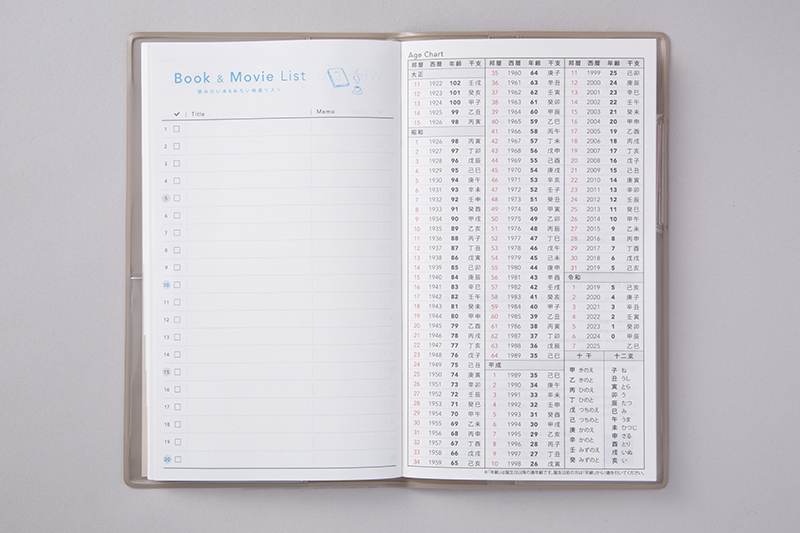 Book & Movie List
読みたい本&みたい映画リスト
✓ Title Memo
1
2
3
4
5
6
7
8
9
10
11
12
13
14
15
16
17
18
19
20
Age Chart
邦暦 西暦 年齢 干支
大正
11 1922 102 壬戌
12 1923 101 癸亥
13 1924 100 甲子
14 1925 99 乙丑
15 1926 98 丙寅
昭和
1 1926 98 丙寅
2 1927 97 丁卯
3 1928 96 戊辰
4 1929 95 己巳
5 1930 94 庚午
6 1931 93 辛未
7 1932 92 壬申
8 1933 91 癸酉
9 1934 90 甲戌
10 1935 89 乙亥
11 1936 88 丙子
12 1937 87 丁丑
13 1938 86 戊寅
14 1939 85 己卯
15 1940 84 庚辰
16 1941 83 辛巳
17 1942 82 壬午
18 1943 81 癸未
19 1944 80 甲申
20 1945 79 乙酉
21 1946 78 丙戌
22 1947 77 丁亥
23 1948 76 戊子
24 1949 75 己丑
25 1950 74 庚寅
26 1951 73 辛卯
27 1952 72 壬辰
28 1953 71 癸巳
29 1954 70 甲午
30 1955 69 乙未
31 1956 68 丙申
32 1957 67 丁酉
33 1958 66 戊戌
34 1959 65 己亥
邦暦 西暦 年齢 干支
35 1960 64 庚子
36 1961 63 辛丑
37 1962 62 壬寅
38 1963 61 癸卯
39 1964 60 甲辰
40 1965 59 乙巳
41 1966 58 丙午
42 1967 57 丁未
43 1968 56 戊申
44 1969 55 己酉
45 1970 54 庚戌
46 1971 53 辛亥
47 1972 52 壬子
48 1973 51 癸丑
49 1974 50 甲寅
50 1975 49 乙卯
51 1976 48 丙辰
52 1977 47 丁巳
53 1978 46 戊午
54 1979 45 己未
55 1980 44 庚申
56 1981 43 辛酉
57 1982 42 壬戌
58 1983 41 癸亥
59 1984 40 甲子
60 1985 39 乙丑
61 1986 38 丙寅
62 1987 37 丁卯
63 1988 36 戊辰
64 1989 35 己巳
平成
1 1989 35 己巳
2 1990 34 庚午
3 1991 33 辛未
4 1992 32 壬申
5 1993 31 癸酉
6 1994 30 甲戌
7 1995 29 乙亥
8 1996 28 丙子
9 1997 27 丁丑
10 1998 26 戊寅
邦暦 西暦 年齢 干支
11 1999 25 己卯
12 2000 24 庚辰
13 2001 23 辛巳
14 2002 22 壬午
15 2003 21 癸未
16 2004 20 甲申
17 2005 19 乙酉
18 2006 18 丙戌
19 2007 17 丁亥
20 2008 16 戊子
21 2009 15 己丑
22 2010 14 庚寅
23 2011 13 辛卯
24 2012 12 壬辰
25 2013 11 癸巳
26 2014 10 甲午
27 2015 9 乙未
28 2016 8 丙申
29 2017 7 丁酉
30 2018 6 戊戌
31 2019 5 己亥
令和
1 2019 5 己亥
2 2020 4 庚子
3 2021 3 辛丑
4 2022 2 壬寅
5 2023 1 癸卯
6 2024 0 甲辰
7 2025 乙巳
十干 十二支
甲 きのえ 子 ね
乙 きのと 丑 うし
丙 ひのえ 寅 とら
丁 ひのと 卯 う
戊 つちのえ 辰 たつ
己 つちのと 巳 み
庚 かのえ 午 うま
辛 かのと 未 ひつじ
壬 みずのえ 申 さる
癸 みずのと 酉 とり
戌 いぬ
亥 い
※「年齢」は誕生日以降の満年齢です。誕生日前の方は「年齢」から1歳を引いてください。